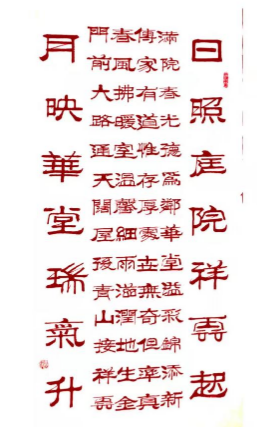 日照庭院祥雲起
滿院春光德爲鄰華堂溢彩錦添新
傳家有道惟存厚處世無奇但率真
春風拂暖室溫馨細雨滋潤地生金
門前大路通天闊屋後青山接祥雲
月映華堂瑞氣升